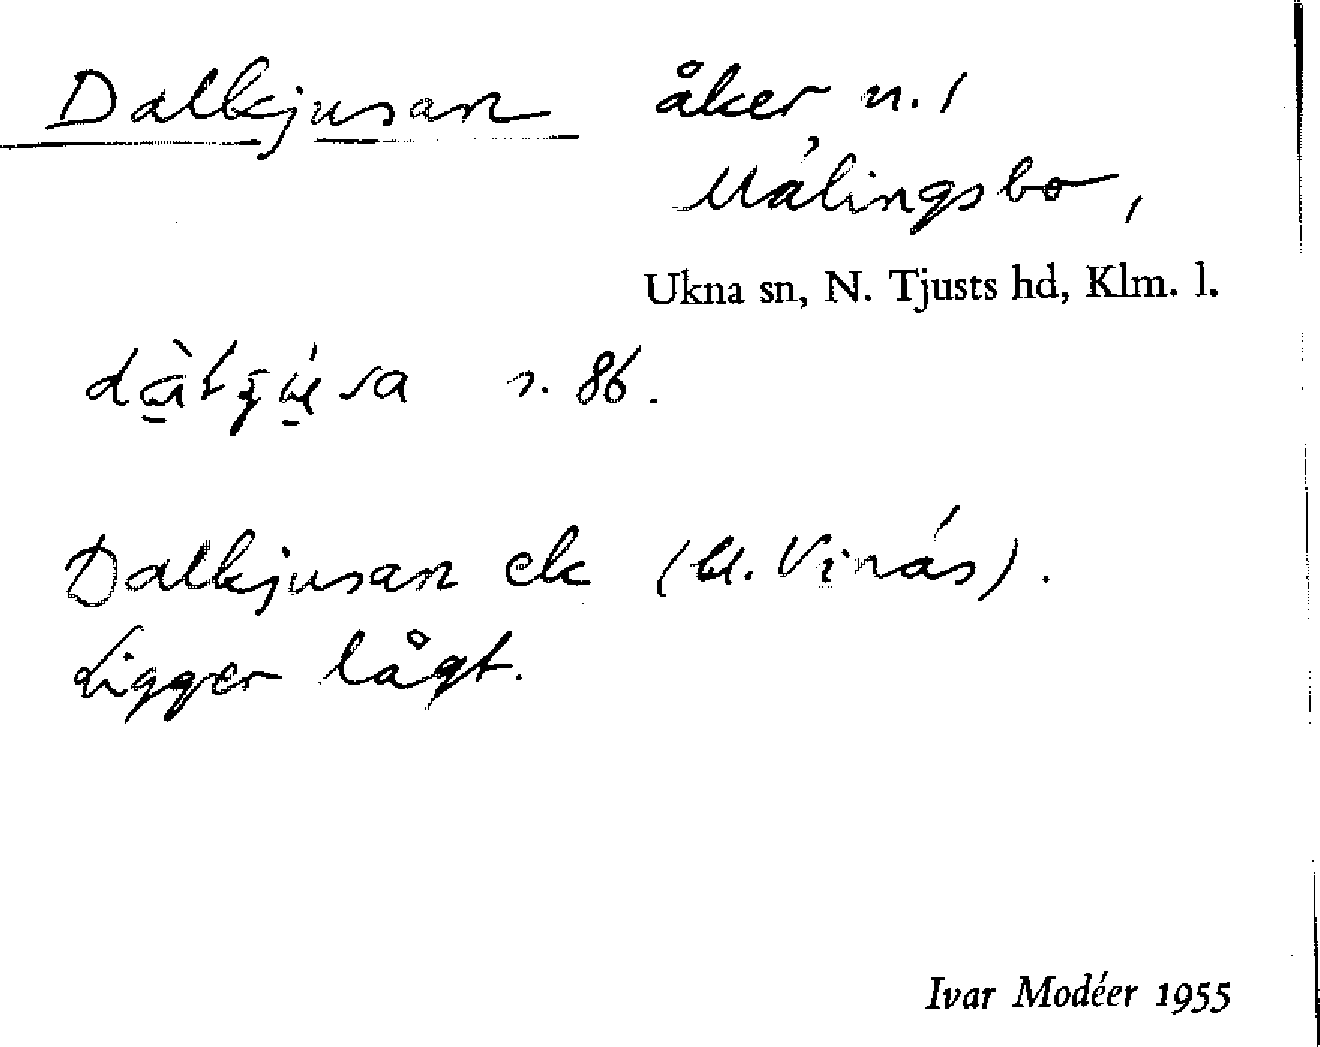 Dalkjusan åker n. 1
Målingsbo,
Ukna sn, N. Tjusts hd, Klm. l.
s. 86.
Dalkjusan ek (kl. Vinås).
Ligger lågt.
Ivar Modéer 1955